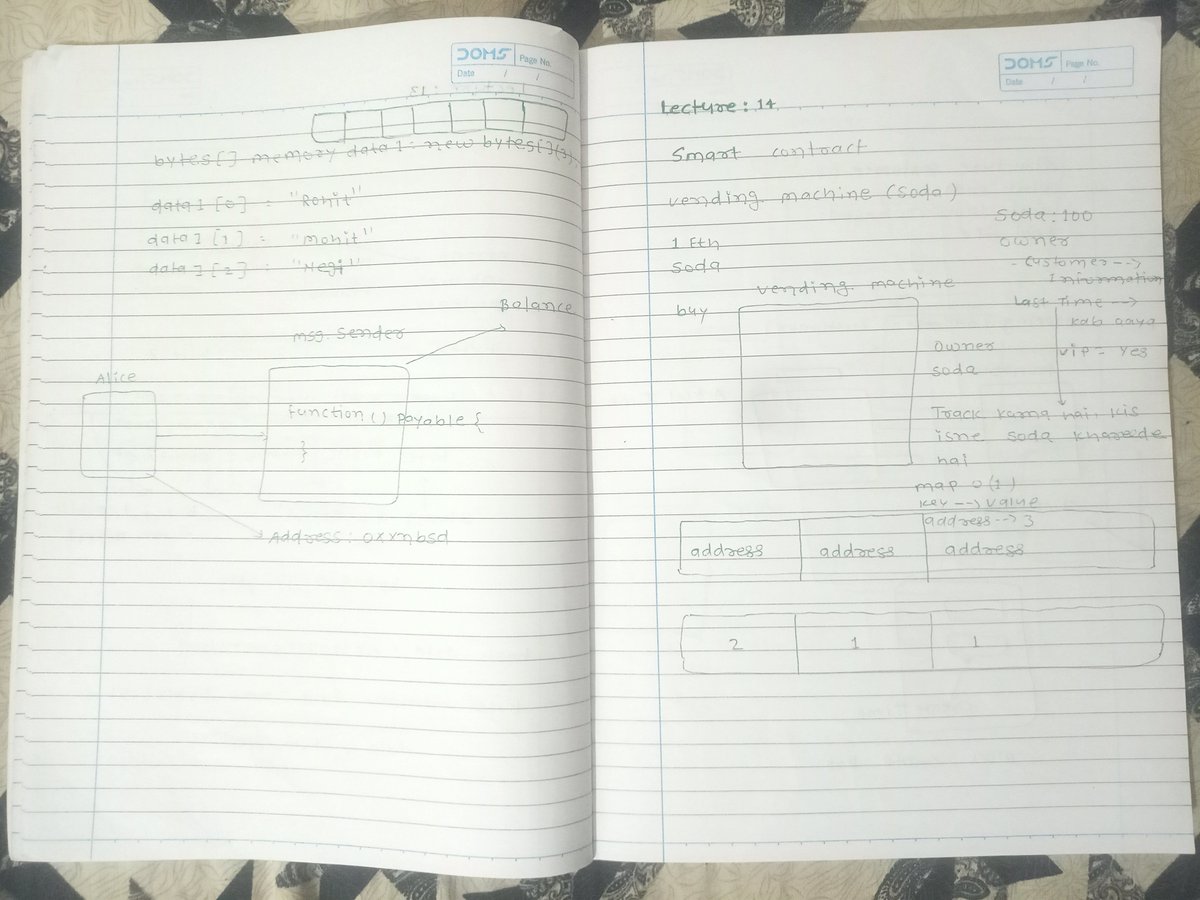 DOMS Page No.
Date / /
bytes[] memory data1 = new bytes[](3);
data1[0] = "Rohit"
data1[1] = "mohit"
data1[2] = "Negi"
Balance
msg. Sender
Alice
function () payable {
}
Address : 0xrnbsd
DOMS Page No.
Date / /
Lecture : 14
Smart contract
vending machine (soda)
Soda : 100
1 Eth
owner
Soda
- Customer -->
Information
vending machine
Last Time -->
buy
kab aaya
owner
vip = Yes
soda
Track karna hai, kis
isne soda kharede
hai
map o(1)
key --> value
address --> 3
address address address
2 1 1